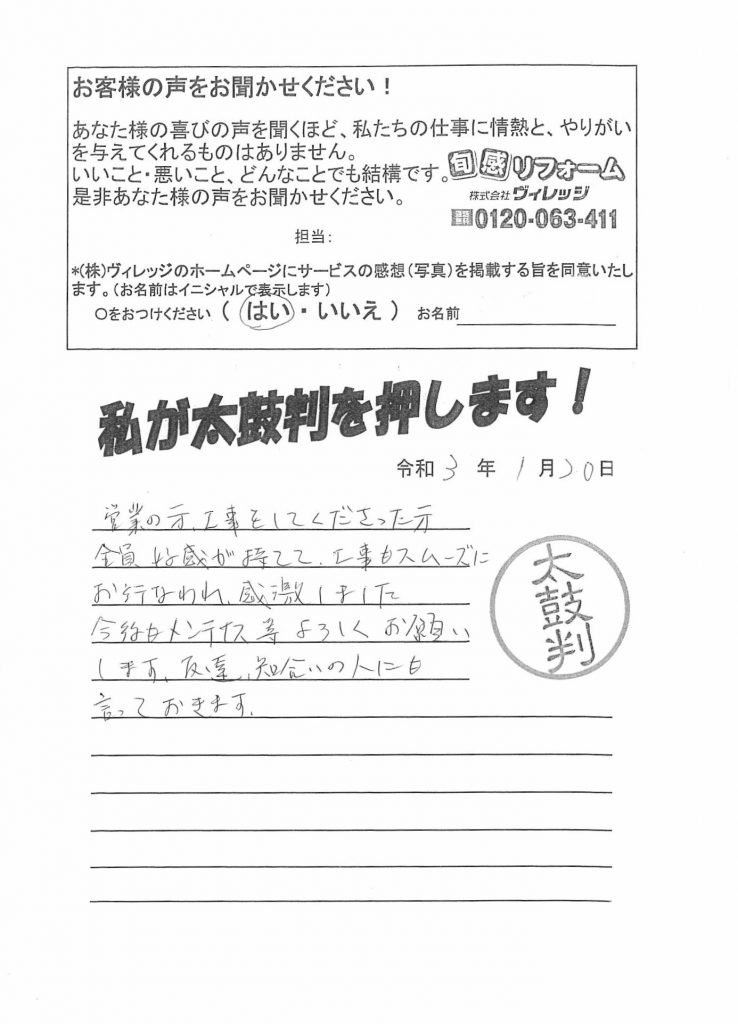 お客様の声をお聞かせください！
あなた様の喜びの声を聞くほど、私たちの仕事に情熱と、やりがい
を与えてくれるものはありません。
いいこと・悪いこと、どんなことでも結構です。
是非あなた様の声をお聞かせください。
旬感リフォーム
株式会社ヴィレッジ
0120-063-411
担当：
*（株）ヴィレッジのホームページにサービスの感想（写真）を掲載する旨を同意いたし
ます。（お名前はイニシャルで表示します）
○をおつけください（はい・いいえ） お名前
私が太鼓判を押します！
令和3年1月20日
営業の方、工事をしてくださった方
全員好感が持てて、工事もスムーズに
お行なわれ、感激しました
今後もメンテナス等よろしくお願い
します、友達、知合いの人にも
言っておきます。
太鼓判